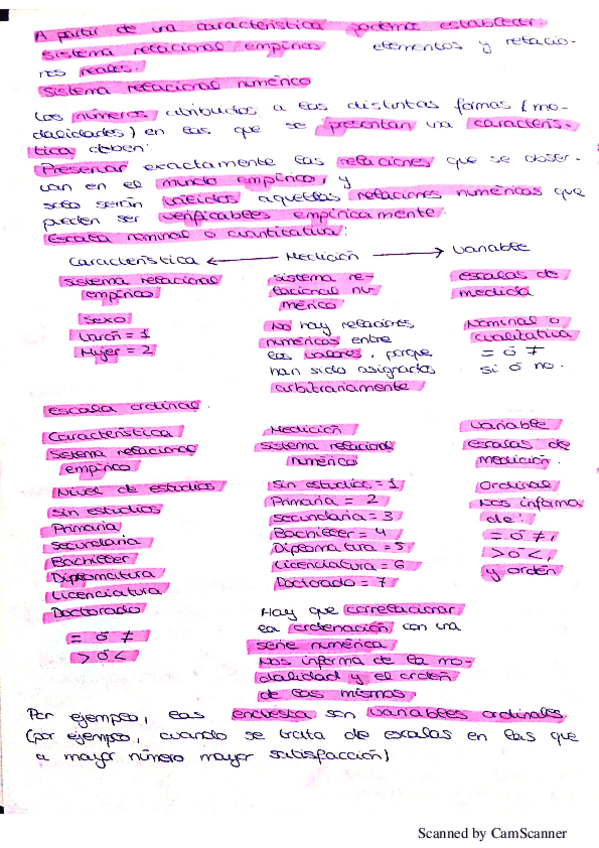 A partir de una característica podemos establecer:
Sistema relacional empírico elementos y relacio-
nes reales.
Sistema relacional numérico
Los números atribuidos a las distintas formas (mo-
dalidades) en las que se presentan una caracterís-
tica deben:
Preservar exactamente las relaciones que se obser-
van en el mundo empírico, y
solo serán válidos aquellas relaciones numéricas que
pueden ser verificables empíricamente.
Escala nominal o cuantitativa:
Característica ← Medición → Variable
sistema relacional empírico
Sexo
Varón = 1
Mujer = 2
sistema re-
lacional nu-
mérico
No hay relaciones
numéricas entre
los valores, porque
han sido asignados
arbitrariamente
escalas de
medida
Nominal o
cualitativa
= ó ≠
si ó no.
Escala ordinal.
Característica
Sistema relacional
empírico
Nivel de estudios
Sin estudios
Primaria
Secundaria
Bachiller
Diplomatura
Licenciatura
Doctorado
= ó ≠
> ó <
Medición
Sistema relacional
numérico
Sin estudios = 1
Primaria = 2
Secundaria = 3
Bachiller = 4
Diplomatura = 5
Licenciatura = 6
Doctorado = 7
Hay que correlacionar
la ordenación con una
serie numérica.
Nos informa de la mo-
dalidad y el orden
de las mismas
Variable
escalas de
medición.
Ordinal
Nos informa
de:
= ó ≠,
> ó <,
y orden
Por ejemplo, las encuesta son variables ordinales
(por ejemplo, cuando se trata de escalas en las que
a mayor número mayor satisfacción)
Scanned by CamScanner